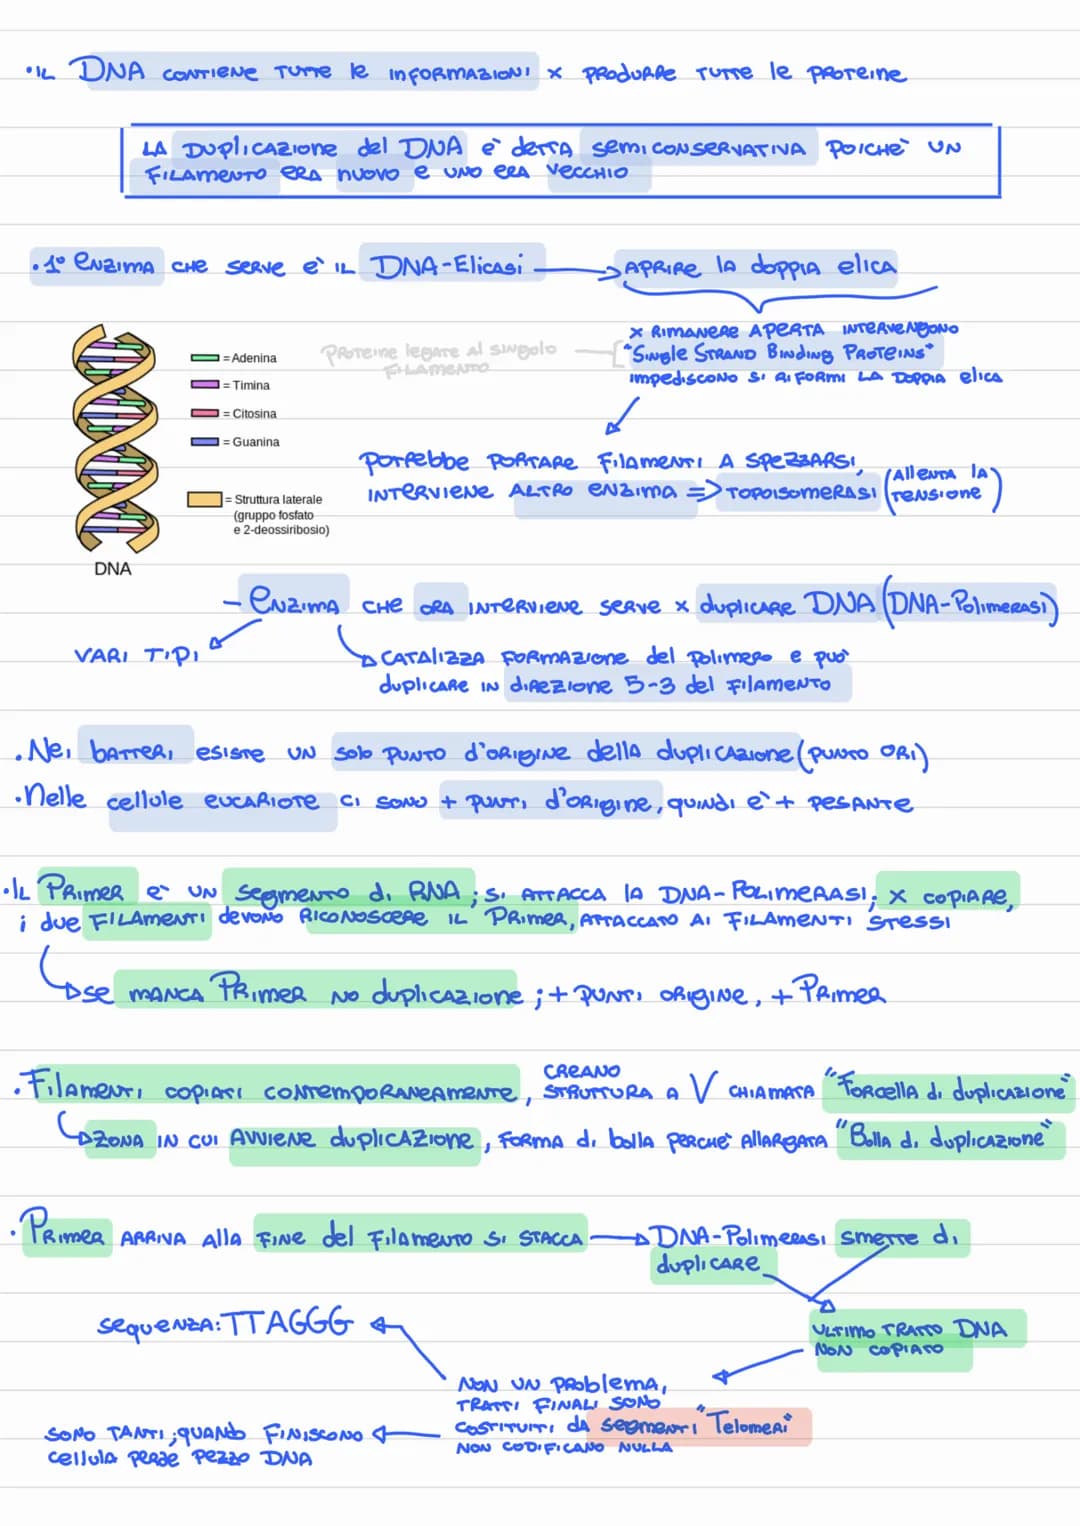 •IL DNA CONTIENE TUTTE le INFORMAZIONI x PRODURRE TUTTE le PROTEINE
LA DUPLICAZIONE del DNA è DETTA SEMICONSERVATIVA POICHÈ UN
FILAMENTO ERA NUOVO E UNO ERA VECCHIO
•1° ENZIMA CHE SERVE è IL DNA-Elicasi → APRIRE LA DOPPIA ELICA
x RIMANERE APERTA INTERVENGONO
"SINGLE STRAND BINDING PROTEINS"
IMPEDISCONO SI RIFORMI LA DOPPIA ELICA
PROTEINE legate Al SINGOLO
FILAMENTO
= Adenina
= Timina
= Citosina
= Guanina
= Struttura laterale
(gruppo fosfato
e 2-deossiribosio)
DNA
POTREBBE PORTARE FILAMENTI A SPEZZARSI,
INTERVIENE ALTRO ENZIMA => TOPOISOMERASI (AllENTA LA TENSIONE)
- ENZIMA CHE ORA INTERVIENE SERVE x DUPLICARE DNA (DNA-Polimerasi)
VARI TIPI
CATALIZZA FORMAZIONE del POLIMERO e PUÒ
DUPLICARE IN DIREZIONE 5-3 del FILAMENTO
•Nei BATTERI ESISTE UN SOLO PUNTO d'ORIGINE della DUPLICAZIONE (PUNTO ORI)
•Nelle cellule EUCARIOTE CI SONO + PUNTI d'ORIGINE, QUINDI è + PESANTE
•IL PRIMER è UN SEGMENTO di RNA; SI ATTACCA LA DNA-POLIMERASI; x COPIARE,
i due FILAMENTI devono RICONOSCERE IL PRIMER, ATTACCATO AI FILAMENTI STESSI
SE MANCA PRIMER NO DUPLICAZIONE; + PUNTI ORIGINE, + PRIMER
•FILAMENTI COPIATI CONTEMPORANEAMENTE, CREANO STRUTTURA A V CHIAMATA "Forcella di duplicazione"
ZONA IN CUI AVVIENE DUPLICAZIONE, FORMA di bolla PERCHÈ ALLARGATA "Bolla di duplicazione"
•PRIMER ARRIVA alla FINE del FILAMENTO SI STACCA → DNA-Polimerasi SMETTE di
DUPLICARE
ULTIMO TRATTO DNA
NON COPIATO
SEQUENZA: TTAGGG
NON UN PROBLEMA,
TRATTI FINALI SONO
COSTITUITI DA SEGMENTI "Telomeri"
NON CODIFICANO NULLA
SONO TANTI; QUANDO FINISCONO
cellula PERDE PEZZO DNA